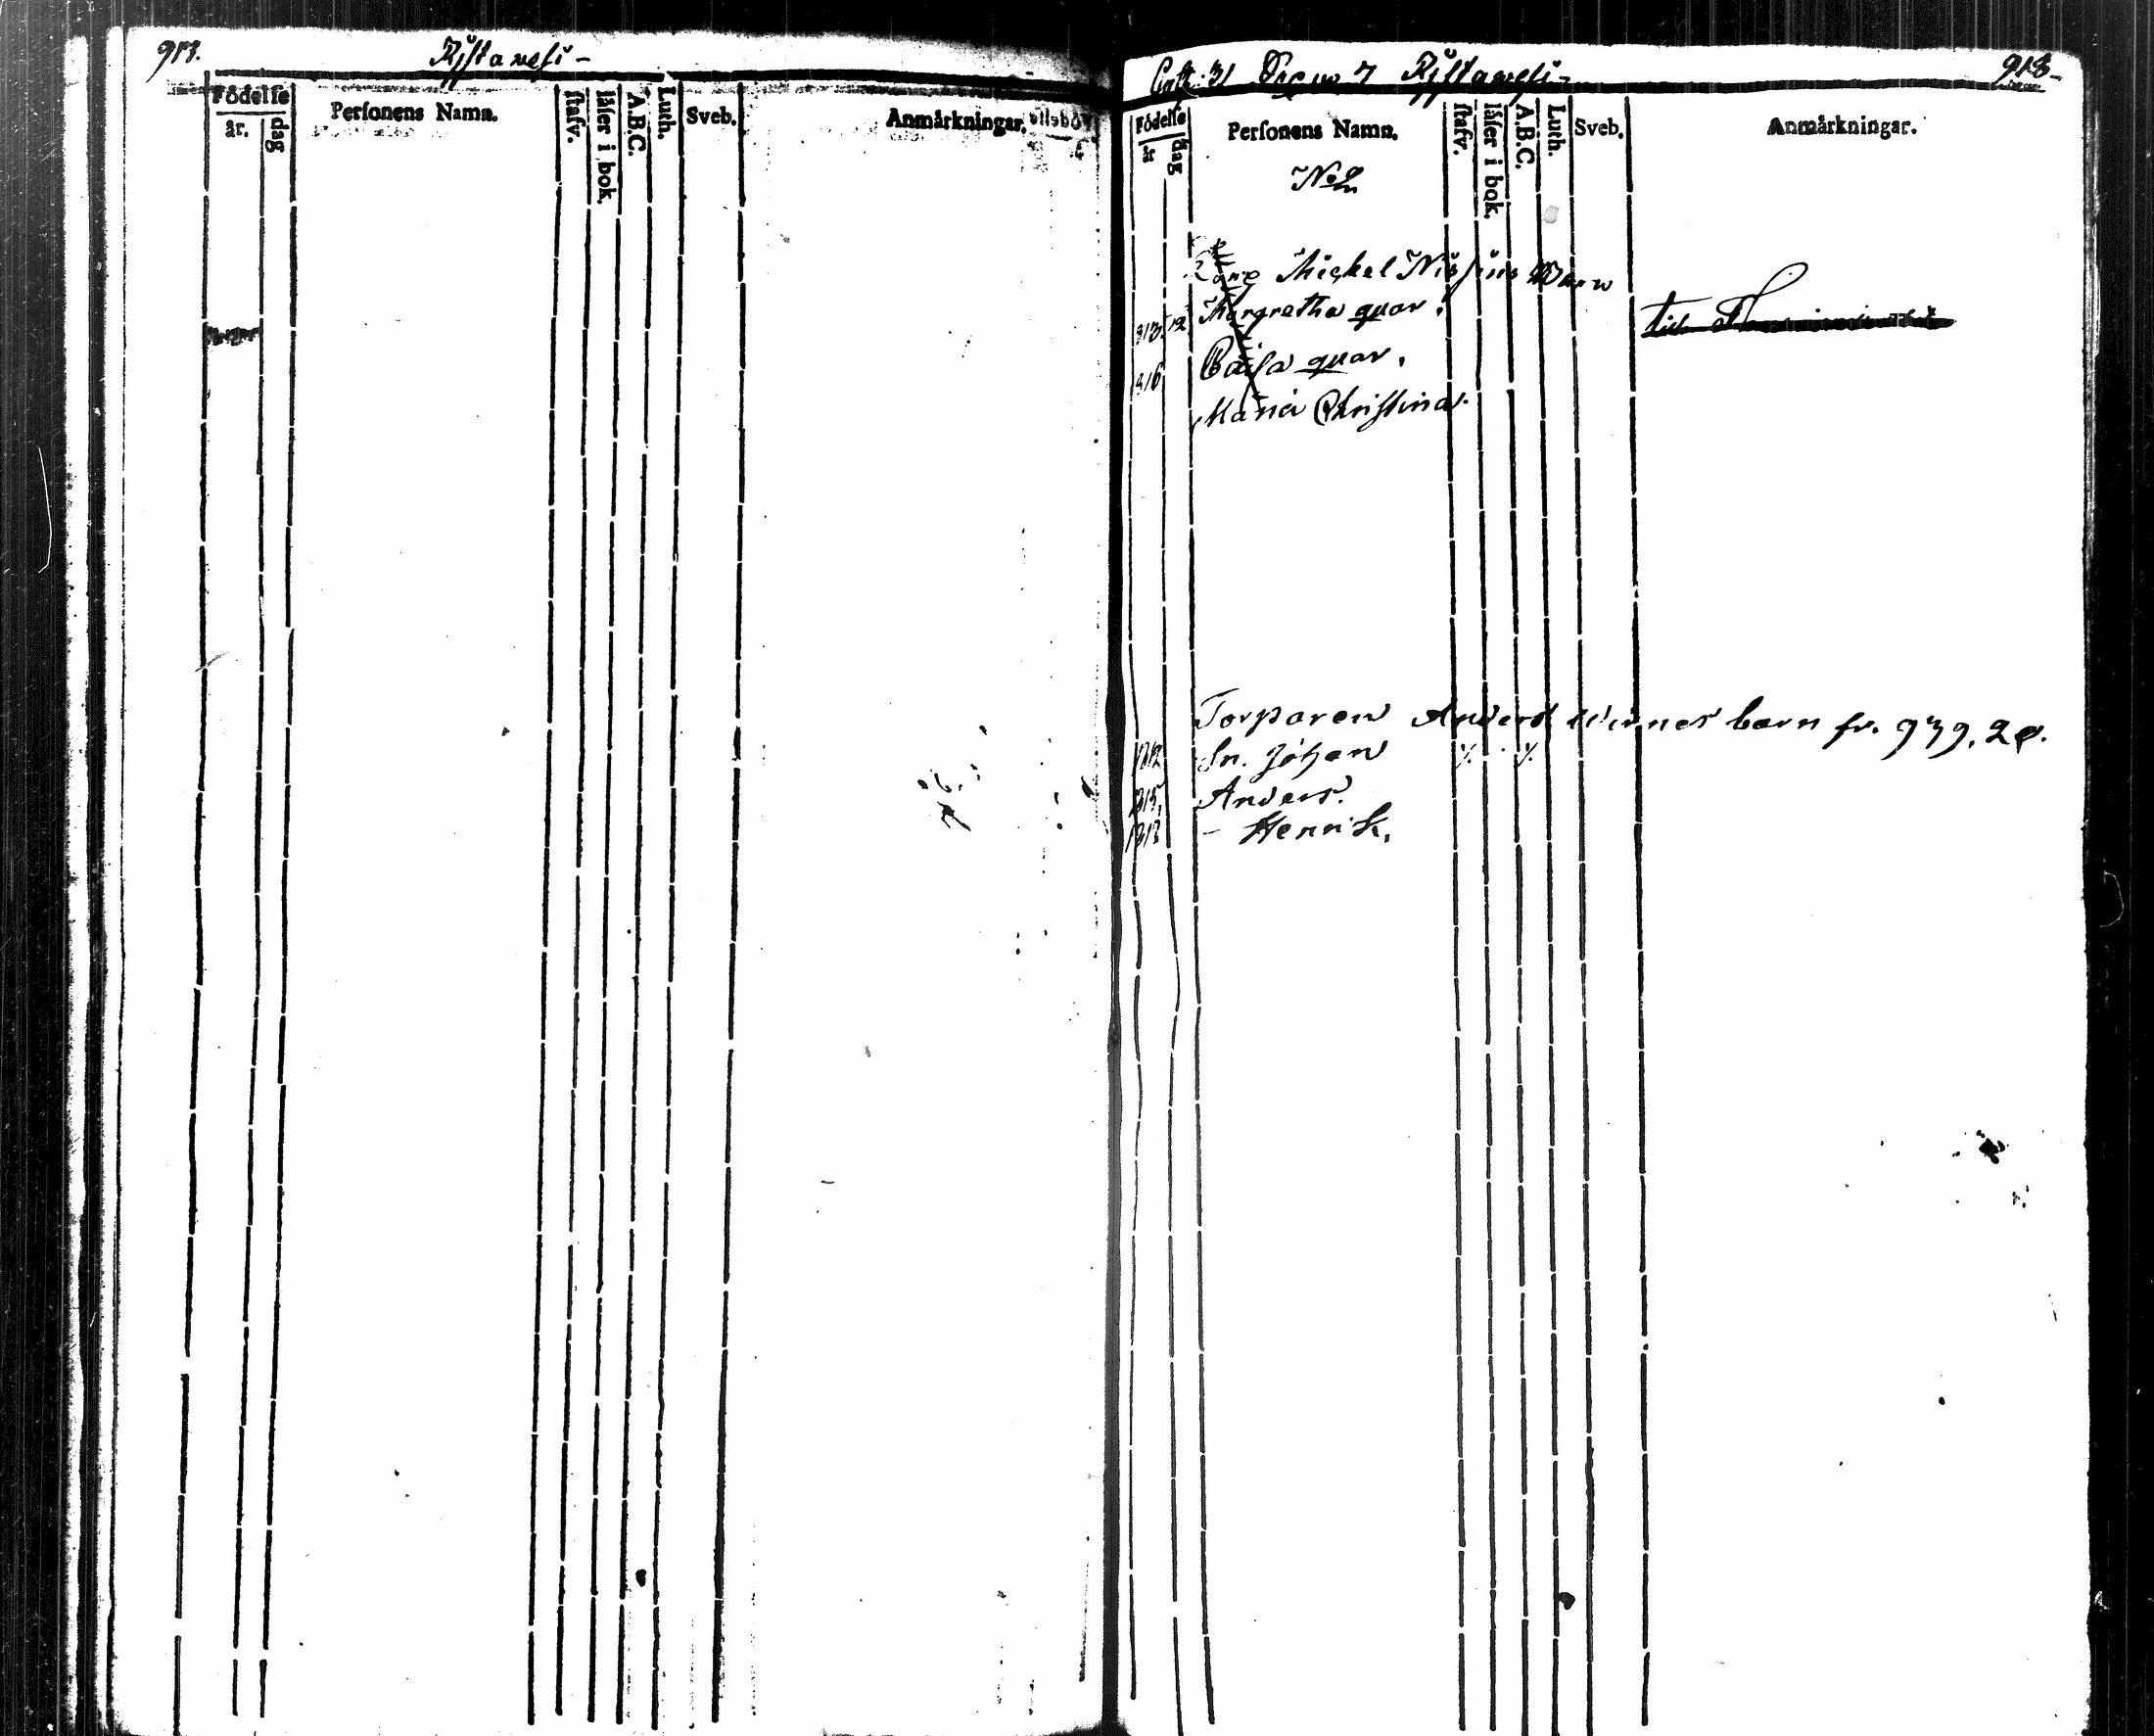 913.
Ristavesi -
Födelse
år.
dag
Personens Namn.
stafv.
läser i bok.
A.B.C.
Luth.
Sveb.
Anmärkningar.
31 7 Ristavesi - 913
Födelse
år
dag
Personens Namn.
stafv.
läser i bok.
A.B.C.
Luth.
Sveb.
Anmärkningar.
Michel Nissins Barn
813. 12 Margretha quar. till
816 Caisa quar.
Maria Christina.
Torparen Anders barn fr. 939.
1812 Sn. Johan
1815, Anders.
- Henrik.